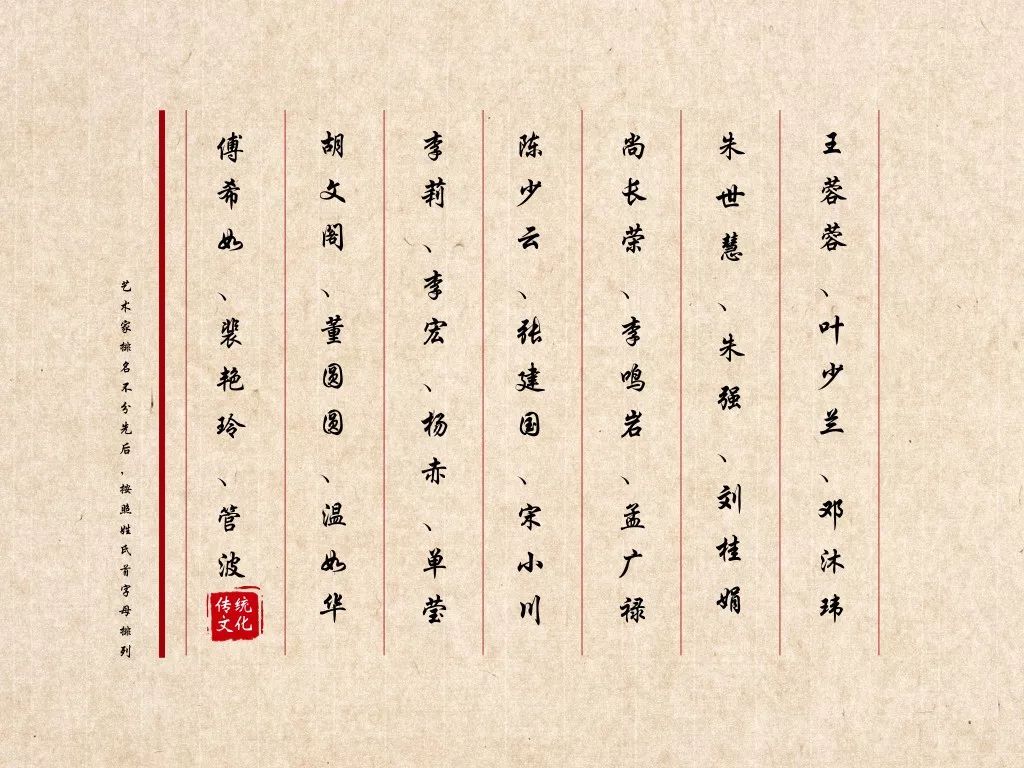 王蓉蓉、叶少兰、邓沐玮
朱世慧、朱强、刘桂娟
尚长荣、李鸣岩、孟广禄
陈少云、张建国、宋小川
李莉、李宏、杨赤、单莹
胡文阁、董圆圆、温如华
傅希如、裴艳玲、管波
传统
文化
艺术家排名不分先后，按照姓氏首字母排列